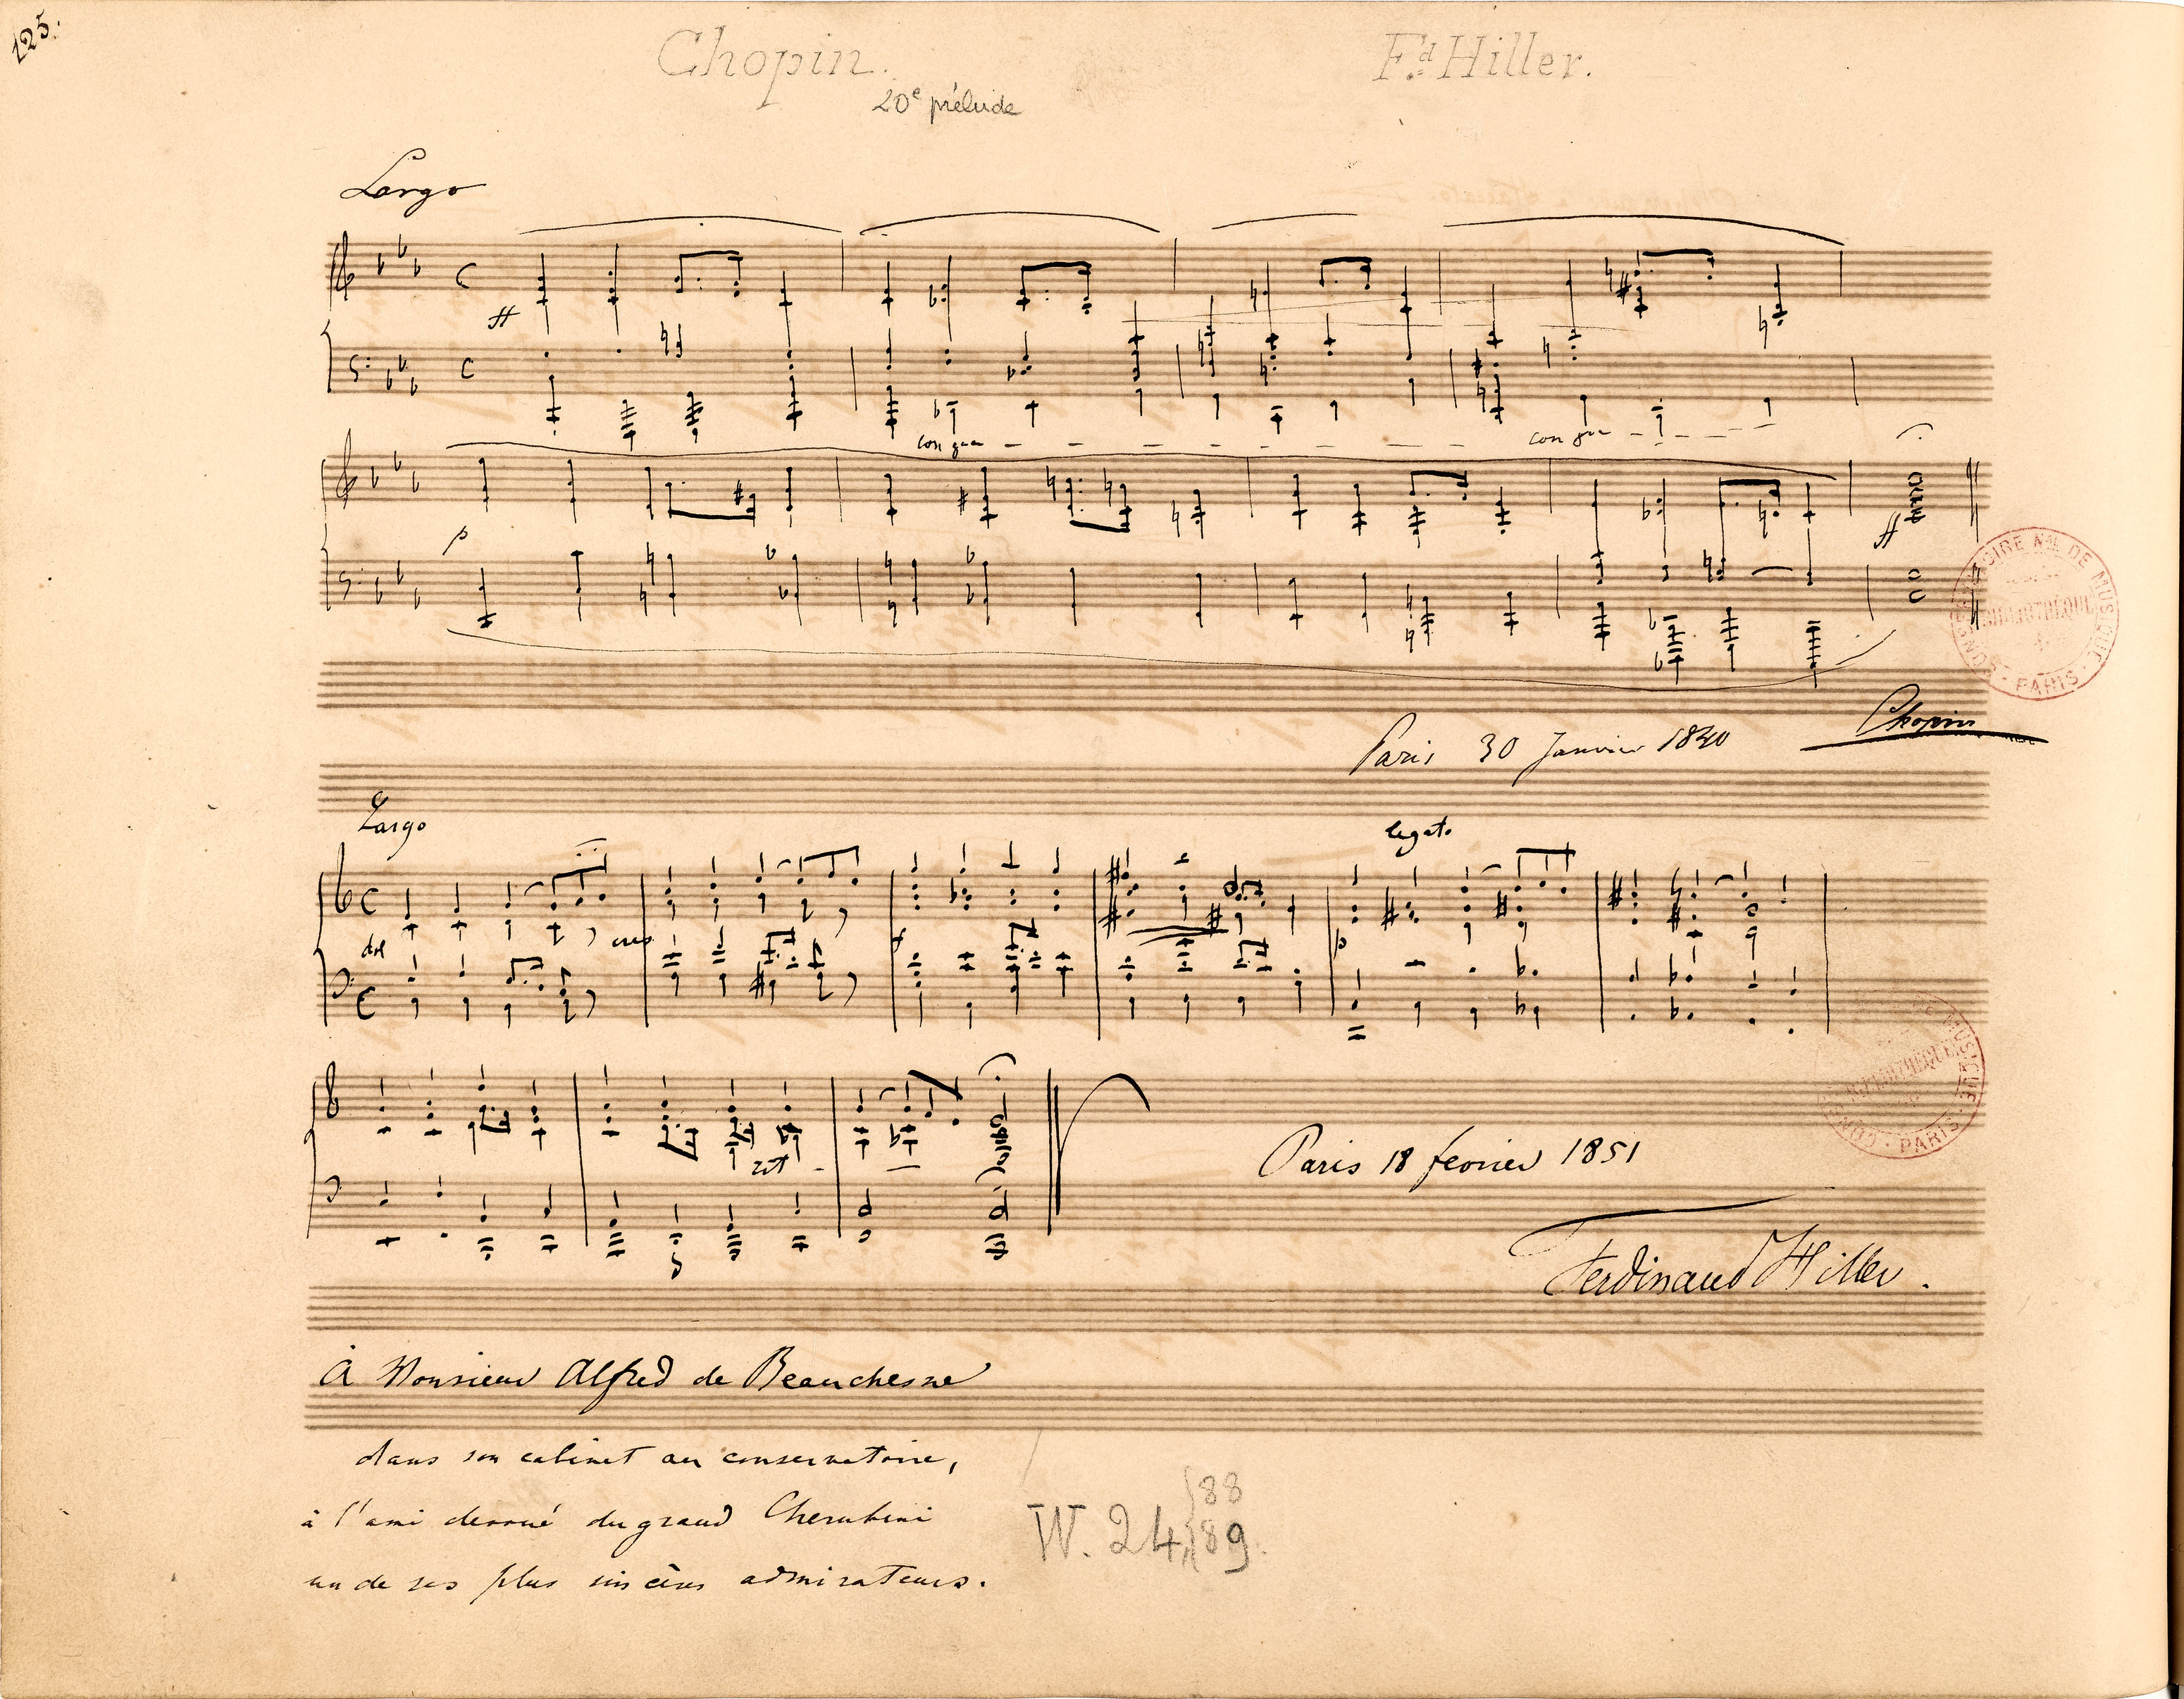 125.
Chopin. Fd. Hiller.
20e prélude
Largo
ff
con 8va
con 8va
p
ff
CONSERVATOIRE NAL DE MUSIQUE
BIBLIOTHÈQUE
PARIS
Chopin
Paris 30 Janvier 1840
Largo
legato
dol
cres
f
p
BIBLIOTHÈQUE
PARIS
rit -
Paris 18 fevrier 1851
Ferdinand Hiller.
À Monsieur Alfred de Beauchesne
dans son cabinet au conservatoire,
à l'ami devoué du grand Cherubini
un de ses plus sincères admirateurs.
W. 24, 88
89.